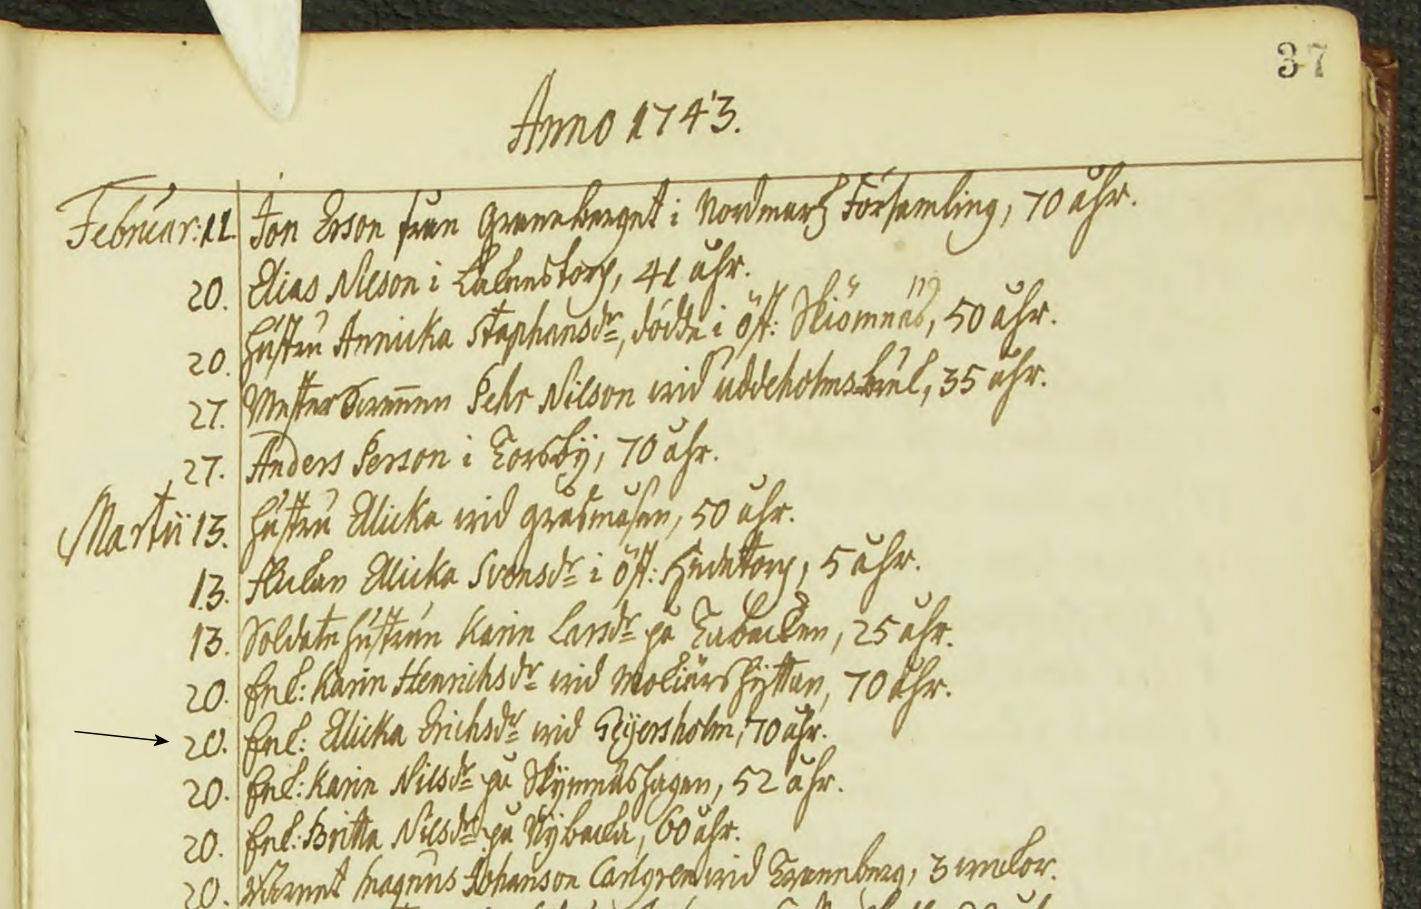 37
Anno 1743.
Februar: 11. Jon Erson från Graneberget i Nordmark Församling, 70 åhr.
20. Elias Nilson i Lakenstorp, 41 åhr.
20. hustru Annicka Staphansdr, dödde i öst: Skiömnäs, 50 åhr.
27. Mestersvennen Pehr Nilson wid uddeholmsbruk, 35 åhr.
27. Anders Person i Torsby, 70 åhr.
Martii 13. hustru Elicka wid gråsmåsen, 50 åhr.
13. flickan Elicka Svensdr i öst: 5 åhr.
13. Soldate hustrun Karin Larsdr på 25 åhr.
20. Enk: Karin Henrichsdr wid Mokiärshyttan, 70 åhr.
20. Enk: Elicka Erichsdr wid Geijersholm, 70 åhr.
20. Enk: Karin Nilsdr på Skymnäshagen, 52 åhr.
20. Enk: Britta Nilsdr på Nybacka, 60 åhr.
20. Barnet Magnus Johanson Carlgren wid Tranneberg, 3 wekor.